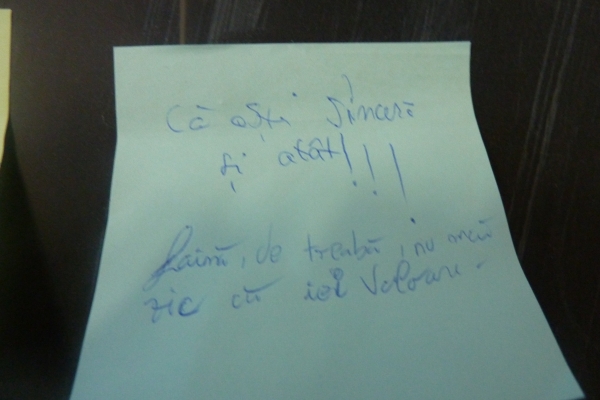 Că ești sinceră
și atât!!!
faină, de treabă, nu mai
zic că iei valoare.